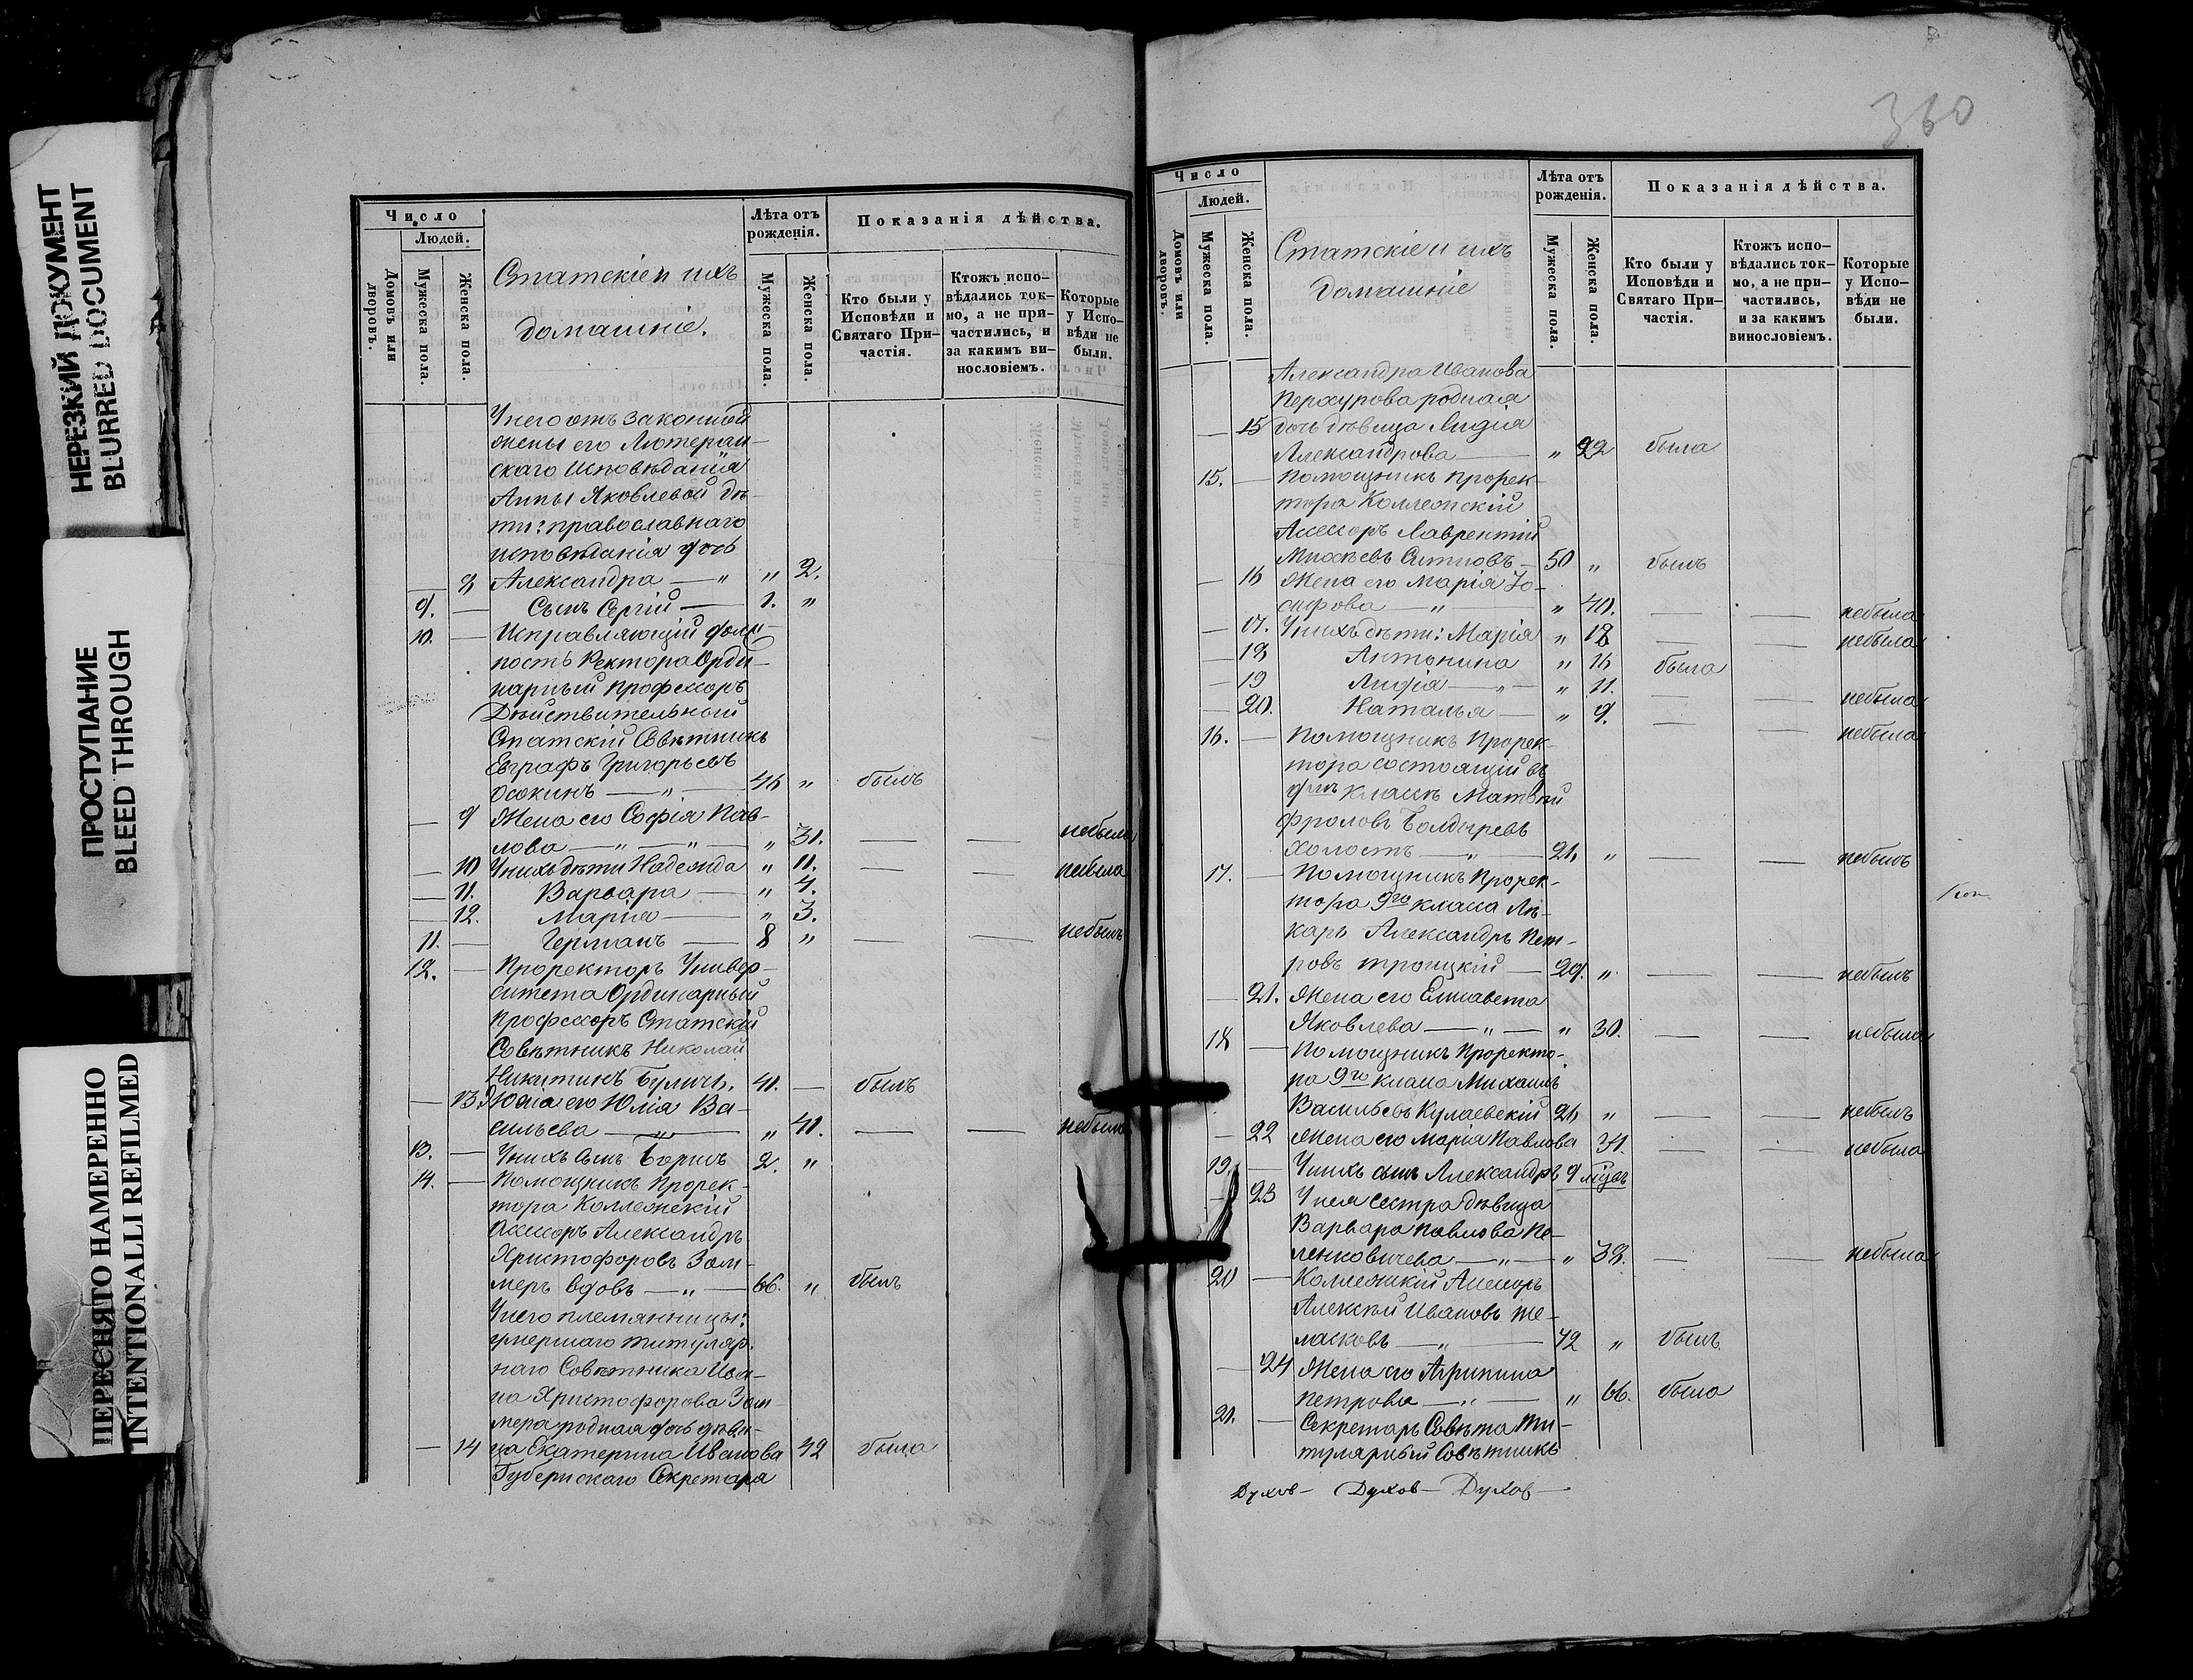 НЕРЕЗКИЙ ДОКУМЕНТ
BLURRED DOCUMENT
ПРОСТУПАНИЕ
BLEED THROUGH
ПЕРЕСНЯТО НАМЕРЕННО
INTENTIONALLI REFILMED
Число
Людей.
Домовъ или дворовъ.
Мужеска пола.
Женска пола.
Статскіе и ихъ
домашніе.
Лѣта отъ рожденія.
Мужеска пола.
Женска пола.
Показанія дѣйства.
Кто были у Исповѣди и Святаго Причастія.
Ктожъ исповѣдались токмо, а не причастились, и за какимъ винословіемъ.
Которые у Исповѣди не были.
У него отъ законной
жены его Лютеран-
скаго исповѣданія
Анны Яковлевой дѣ-
ти: православнаго
исповѣданія дочь
8 Александра — „ „ 2.
9. — Сынъ Сергій — 1. „
10. — Исправляющій долж-
ность Ректора Орди-
нарный Профессоръ
Дѣйствительный
Статскій Совѣтникъ
Евграфъ Григорьевъ
Осокинъ — „ — 46 „ былъ
— 9 Жена его Софія Пав-
лова — „ — „ — „ 31. — — небыла
— 10 У нихъ дѣти Надежда „ 11. — — небыла
— 11. Варвара — „ 4.
— 12. Марія — „ 3.
11. — Германъ — 8 „ — — небылъ
12. — Проректоръ Универ-
ситета Ординарный
Профессоръ Статскій
Совѣтникъ Николай
Никитинъ Буличь. 41. — былъ
— 13 Жена его Юлія Ва-
сильева — „ — „ 41. — — небыла
13. — У нихъ сынъ Борисъ 2. „
14. — Помощникъ Прорек-
тора Коллежскій
Ассесоръ Александръ
Христофоровъ Зом-
меръ вдовъ — „ — 66. „ былъ
У него племянницы:
умершаго титуляр-
наго Совѣтника Ива-
на Христофорова Зом-
мера родная дочь дѣви-
— 14 ца Екатерина Иванова 42 была
Губернскаго Секретаря
360
Число
Людей.
Домовъ или дворовъ.
Мужеска пола.
Женска пола.
Статскіе и ихъ
домашніе
Лѣта отъ рожденія.
Мужеска пола.
Женска пола.
Показанія дѣйства.
Кто были у Исповѣди и Святаго Причастія.
Ктожъ исповѣдались токмо, а не причастились, и за какимъ винословіемъ.
Которые у Исповѣди не были.
Александра Иванова
Перхурова родная
— 15 дочь дѣвица Лидія
Александрова — „ 22 была
15. — Помощникъ Прорек-
тора Коллежскій
Ассесоръ Лаврентій
Михѣевъ — 50 „ былъ
— 16 Жена его Марія Іо-
сифова — „ — „ 40. — — небыла
— 17. У нихъ дѣти: Марія „ 18 — — небыла
— 18 Антонина „ 16 была
— 19 Лидія — „ — „ 11. — — небыла
— 20. Наталья — „ 9. — — небыла
16. — Помощникъ Прорек-
тора состоящій въ
классѣ Матвѣй
Фроловъ Болдыревъ
холостъ — „ — „ — — небылъ
17. — Помощникъ Прорек-
тора 9го класса Лѣ-
карь Александръ Пет-
ровъ Троицкій — 29. „ — — небылъ
— 21. Жена его Елисавета
Яковлева — „ — „ 30. — — небыла
18 — Помощникъ Проректо-
ра 9го класса Михаилъ
Васильевъ Кулаевскій „ — — небылъ
— 22 Жена его Марія Павлова 31. — — небыла
19. — У нихъ сынъ Александръ 9 мѣсяц.
— 23 У нея сестра дѣвица
Варвара Павлова Пе-
ленковичева — „ — „ 38. — — небыла
20 — Коллежскій Ассесоръ
Алексѣй Ивановъ Же-
ласковъ — „ — 72 „ былъ
— 24 Жена его Агрипина
Петрова — „ — „ 66. была
21. — Секретарь Совѣта Ти-
тулярный Совѣтникъ
Духов — Духов — Духов —